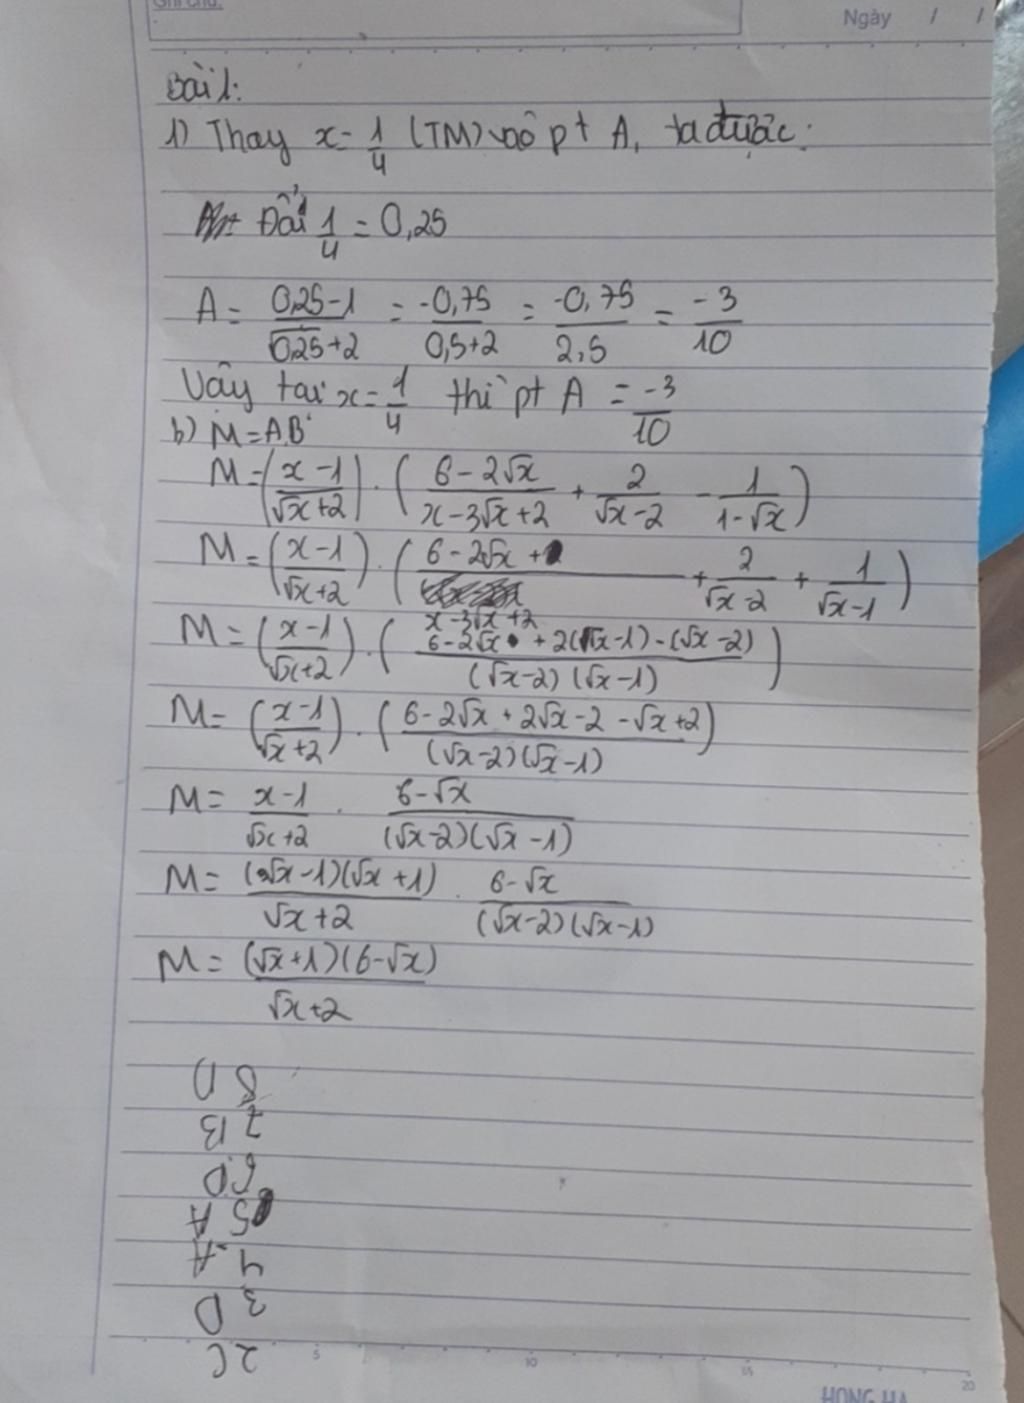 Ghi chú:
Ngày / /
Bài 1:
1) Thay x = 1/4 (TM) vào pt A, ta được:
Đổi 1/4 = 0,25
A = (0,25-1)/(√0,25+2) = -0,75/(0,5+2) = -0,75/2,5 = -3/10
Vậy tại x = 1/4 thì pt A = -3/10
b) M = A.B
M = ((x-1)/(√x+2)) . ((6-2√x)/(x-3√x+2) + 2/(√x-2) - 1/(1-√x))
M = ((x-1)/(√x+2)) . ((6-2√x +)/(x-3√x+2) + 2/(√x-2) + 1/(√x-1))
M = ((x-1)/(√x+2)) . ((6-2√x + 2(√x-1) - (√x-2))/((√x-2)(√x-1)))
M = ((x-1)/(√x+2)) . ((6-2√x+2√x-2-√x+2)/((√x-2)(√x-1)))
M = (x-1)/(√x+2) . (6-√x)/((√x-2)(√x-1))
M = ((√x-1)(√x+1))/(√x+2) . (6-√x)/((√x-2)(√x-1))
M = ((√x+1)(6-√x))/(√x+2)
2 C
3 D
4 A
5 A
6 D
7 B
8 D
5 10 15 20
HONG HA